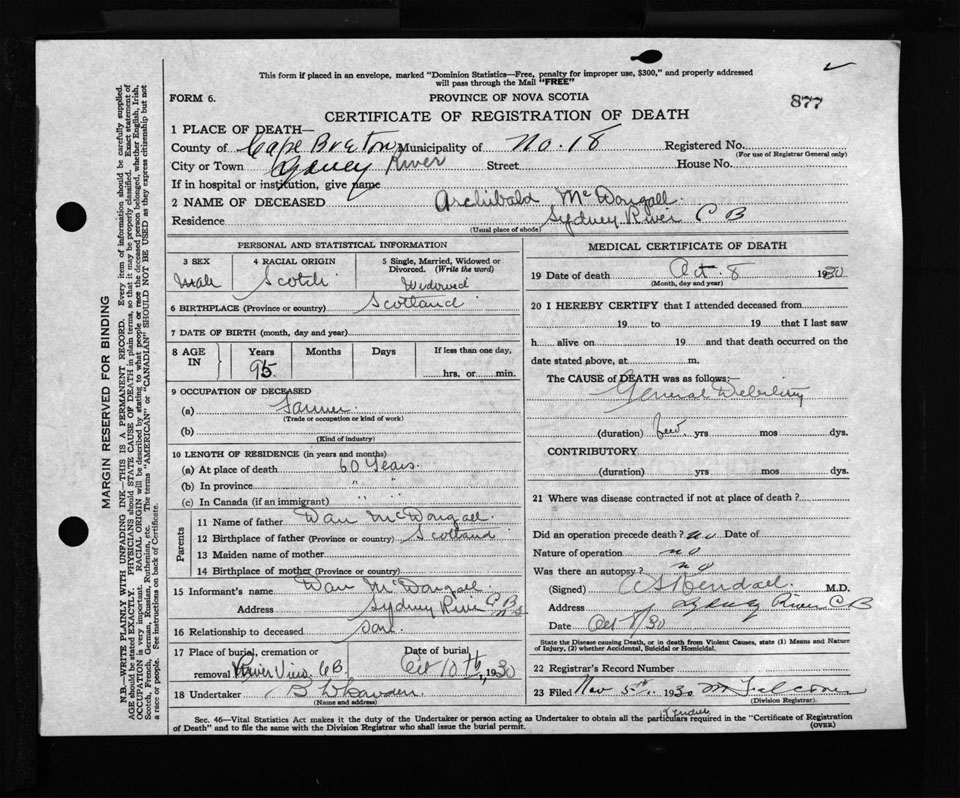 This form if placed in an envelope, marked "Dominion Statistics—Free, penalty for improper use, $300," and properly addressed
will pass through the Mail "FREE"
FORM 6.
PROVINCE OF NOVA SCOTIA
877
CERTIFICATE OF REGISTRATION OF DEATH
1 PLACE OF DEATH—
County of Cape Breton Municipality of No. 18 Registered No.
(For use of Registrar General only)
City or Town Sydney River Street House No.
If in hospital or institution, give name
2 NAME OF DECEASED Archibald McDougall
Residence Sydney River C B
(Usual place of abode)
PERSONAL AND STATISTICAL INFORMATION
3 SEX Male
4 RACIAL ORIGIN Scotch
5 Single, Married, Widowed or
Divorced. (Write the word)
Widowed
6 BIRTHPLACE (Province or country) Scotland
7 DATE OF BIRTH (month, day and year)
8 AGE IN Years Months Days If less than one day,
95. hrs. or min.
9 OCCUPATION OF DECEASED
(a) Farmer
(Trade or occupation or kind of work)
(b)
(Kind of industry)
10 LENGTH OF RESIDENCE (in years and months)
(a) At place of death 60 Years.
(b) In province " "
(c) In Canada (if an immigrant) " "
Parents
11 Name of father Dan McDougall
12 Birthplace of father (Province or country) Scotland
13 Maiden name of mother
14 Birthplace of mother (Province or country)
15 Informant's name Dan McDougall
Address Sydney River C B
N S
16 Relationship to deceased Son.
17 Place of burial, cremation or
removal River View CB
Date of burial
Oct 10th, 1930
18 Undertaker
(Name and address)
MEDICAL CERTIFICATE OF DEATH
19 Date of death Oct. 8 1930
(Month, day and year)
20 I HEREBY CERTIFY that I attended deceased from
19 to 19 that I last saw
h alive on 19 and that death occurred on the
date stated above, at m.
The CAUSE of DEATH was as follows:—
General Debility
(duration) few yrs mos dys.
CONTRIBUTORY
(duration) yrs mos dys.
21 Where was disease contracted if not at place of death ?
Did an operation precede death ? no Date of
Nature of operation no
Was there an autopsy ? no
(Signed) Kendall. M.D.
Address Sydney River C B
Date Oct 8/30
State the Disease causing Death, or in death from Violent Causes, state (1) Means and Nature
of Injury, (2) whether Accidental, Suicidal or Homicidal.
22 Registrar's Record Number
23 Filed Nov 5th, 1930 M Falconer
(Division Registrar)
Sec. 46—Vital Statistics Act makes it the duty of the Undertaker or person acting as Undertaker to obtain all the particulars required in the "Certificate of Registration
of Death" and to file the same with the Division Registrar who shall issue the burial permit.
(OVER)
MARGIN RESERVED FOR BINDING
N.B.—WRITE PLAINLY WITH UNFADING INK—THIS IS A PERMANENT RECORD. Every item of information should be carefully supplied.
AGE should be stated EXACTLY. PHYSICIANS should STATE CAUSE OF DEATH in plain terms, so that it may be properly classified. Exact statement of
OCCUPATION is very important. RACIAL ORIGIN will be described by stating to what people or race the deceased person belonged, whether English, Irish,
Scotch, French, German, Russian, Ruthenian, etc. The terms "AMERICAN" or "CANADIAN" SHOULD NOT BE USED as they express citizenship but not
a race or people. See instructions on back of Certificate.